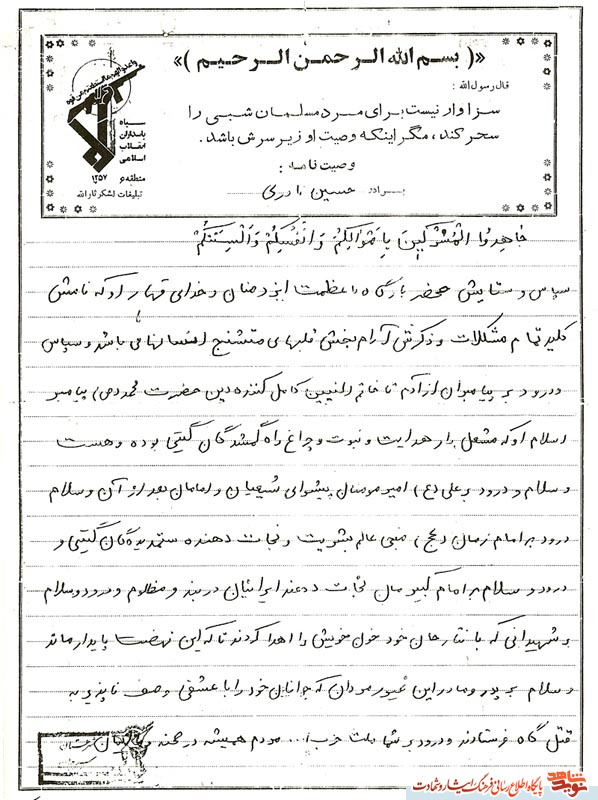 «( بسم الله الرحمن الرحیم )»
قال رسول الله :
سزاوار نیست برای مرد مسلمان شبی را
سحر کند ، مگر اینکه وصیت او زیر سرش باشد .
وصیت نامه :
برادر حسین نادری
سپاه
پاسداران
انقلاب
اسلامی
۱۳۵۷
منطقه ۶
تبلیغات لشکر ثارالله
جاهِدُوا الْمُشرِکینَ بِاَموالِکُمْ وَ اَنْفُسِکُمْ وَ اَلْسِنَتِکُمْ
سپاس و ستایش بمحضر بارگاه با عظمت ایزد منان و خدای قهار او که نامش
کلید تمام مشکلات و ذکرش آرام بخش قلبهای متشنج انسانها می باشد و سپاس
و درود بر پیامبران از آدم تا خاتم النبیین کامل کننده دین حضرت محمد (ص) پیامبر
اسلام او که مشعل دار هدایت و نبوت و چراغ راه گمشدگان گیتی بوده و هست
و سلام و درود بر علی (ع) امیر مومنان پیشوای شیعیان و امامان بعد از آن و سلام
درود بر امام زمان (عج) منجی عالم بشریت و نجات دهنده ستمدیدگان گیتی و
درود و سلام بر امام کبیرمان نجات دهنده ایرانیان دربند و مظلوم و درود و سلام
بر شهیدانی که با نثار جان خود خون خویش را اهدا کردند تا که این نهضت پایدار ماند
و سلام بر پدر و مادر این غیور مردان که جوانان خود را با عشقی وصف ناپذیر به
قتل گاه فرستادند و درود بر شما ملت حزب ا... مردم همیشه در صحنه
نوید شاهد
پایگاه اطلاع رسانی فرهنگ ایثار و شهادت